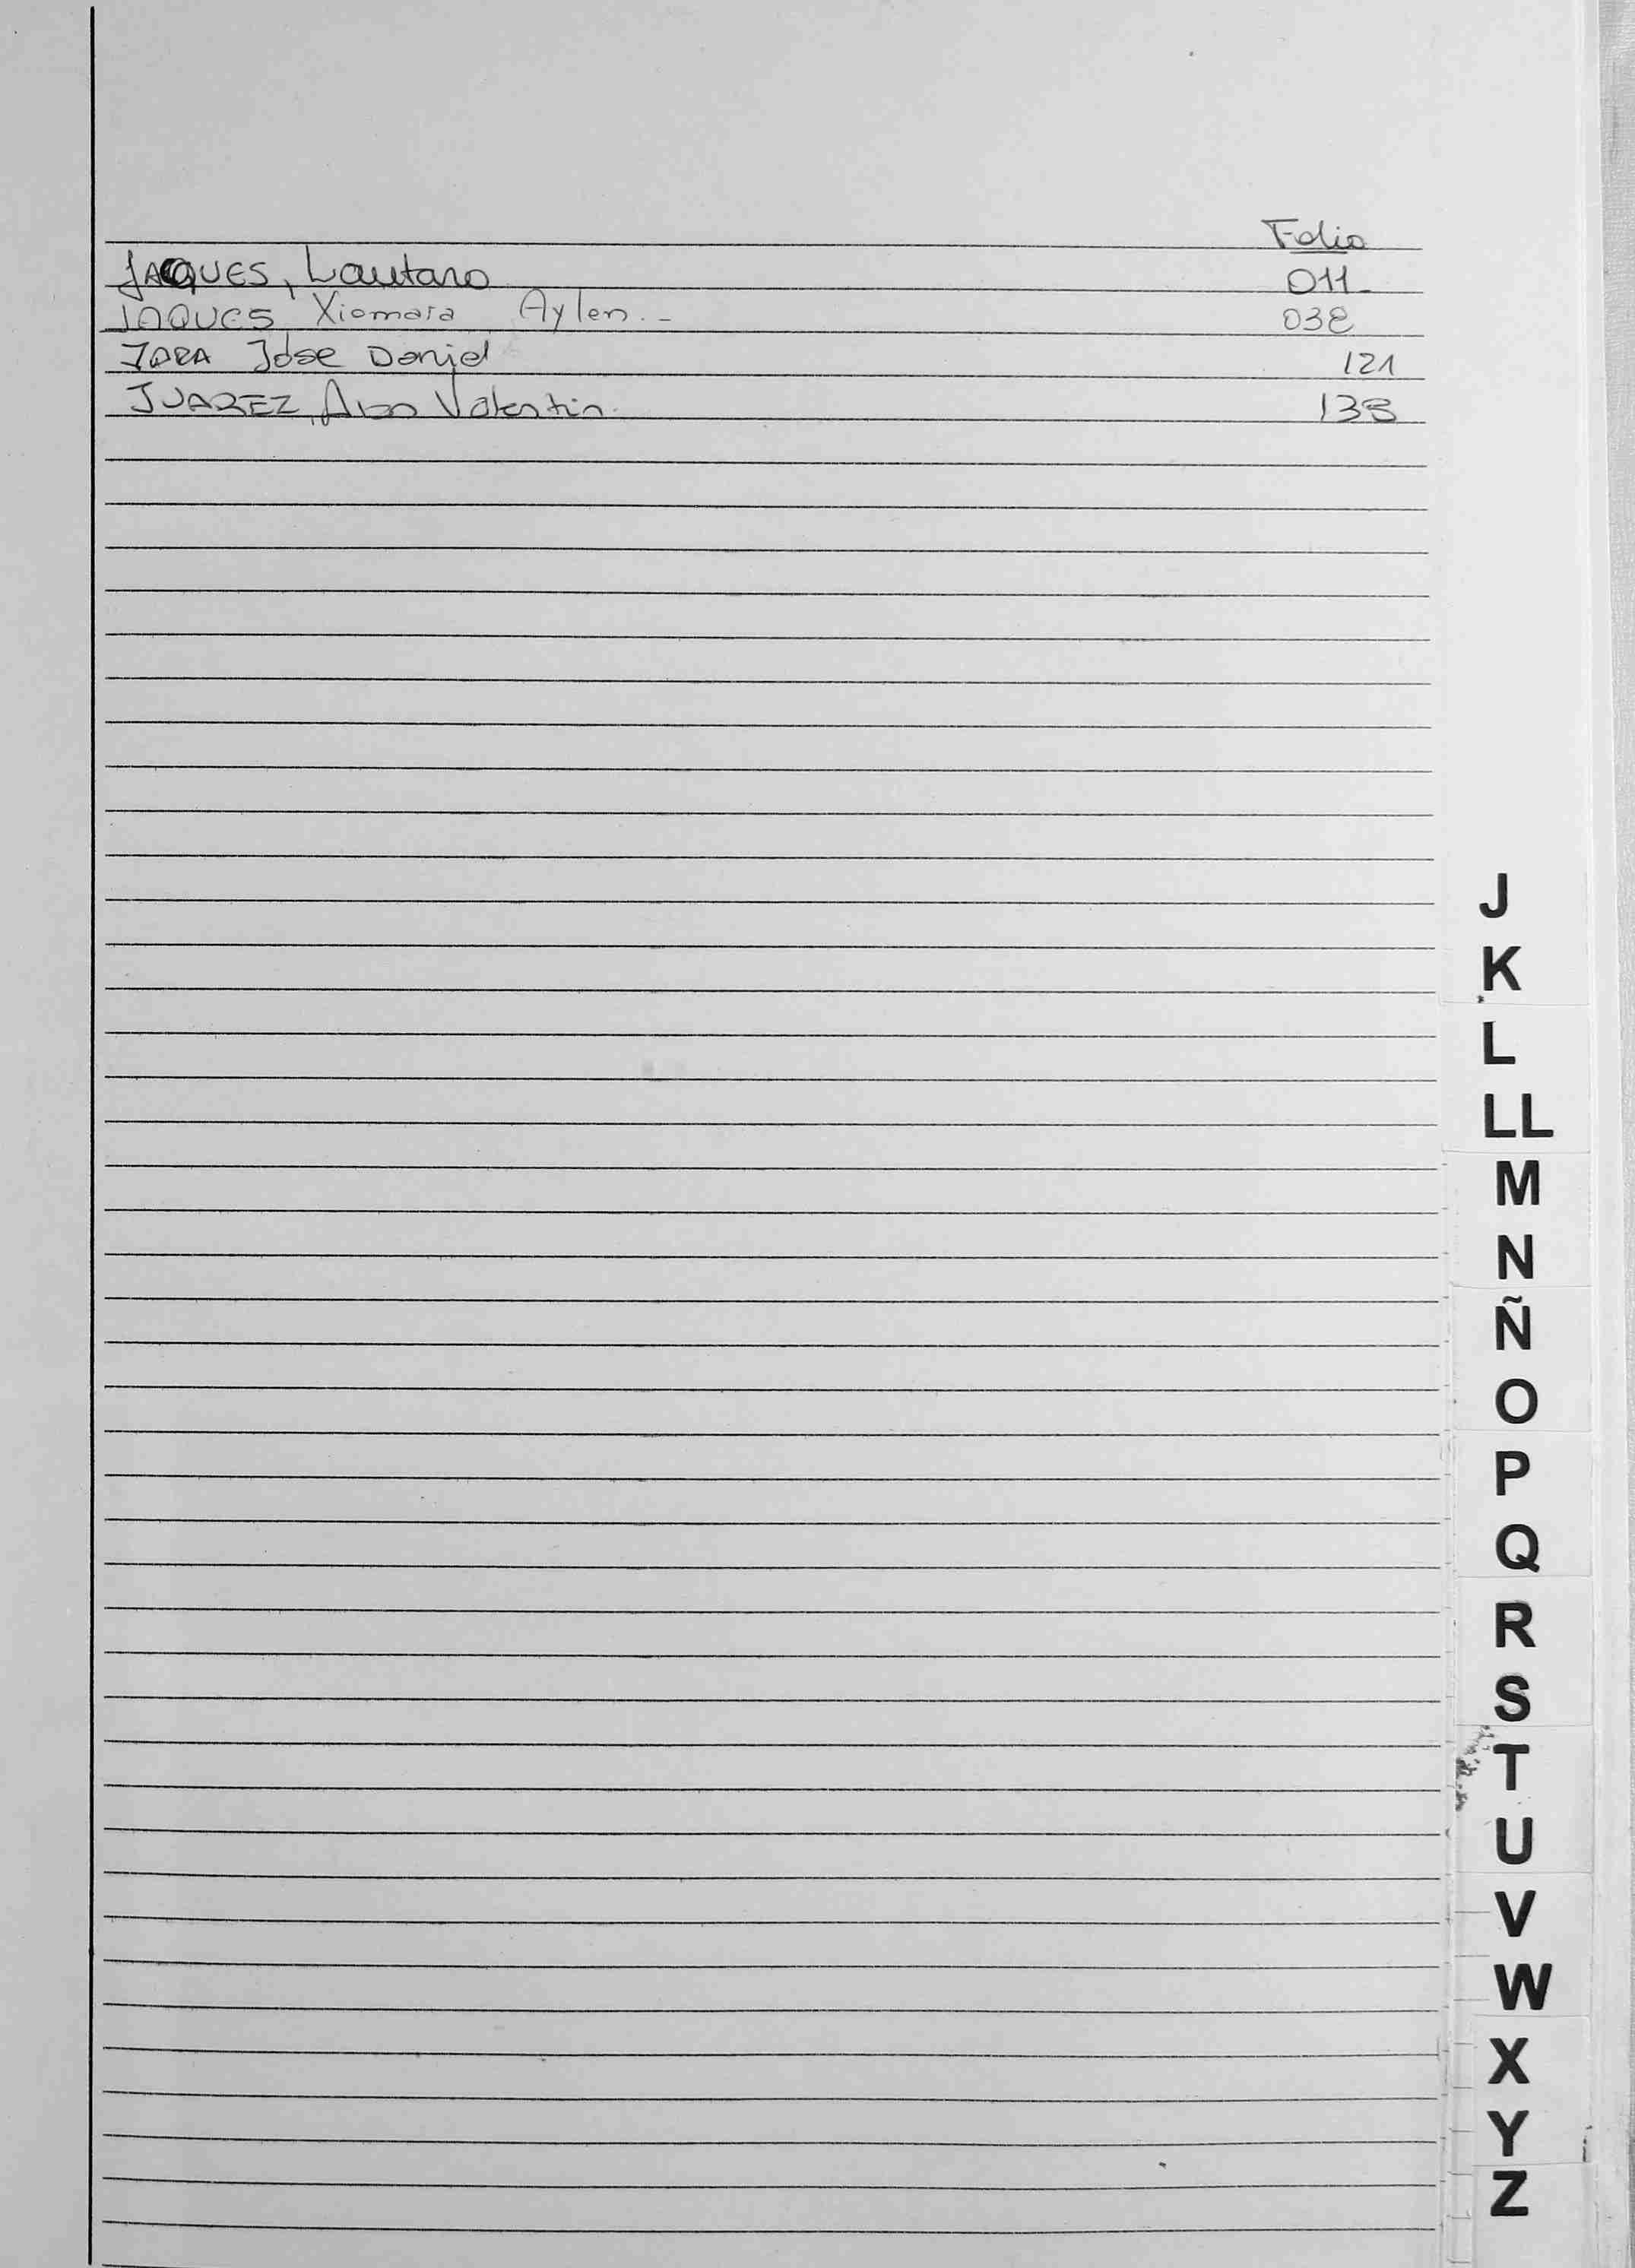 Folio
JACQUES, Lautaro 011
JAQUES Xiomara Aylen.- 038
JARA Jose Daniel 121
JUAREZ, Valentin. 138
J
K
L
LL
M
N
Ñ
O
P
Q
R
S
T
U
V
W
X
Y
Z